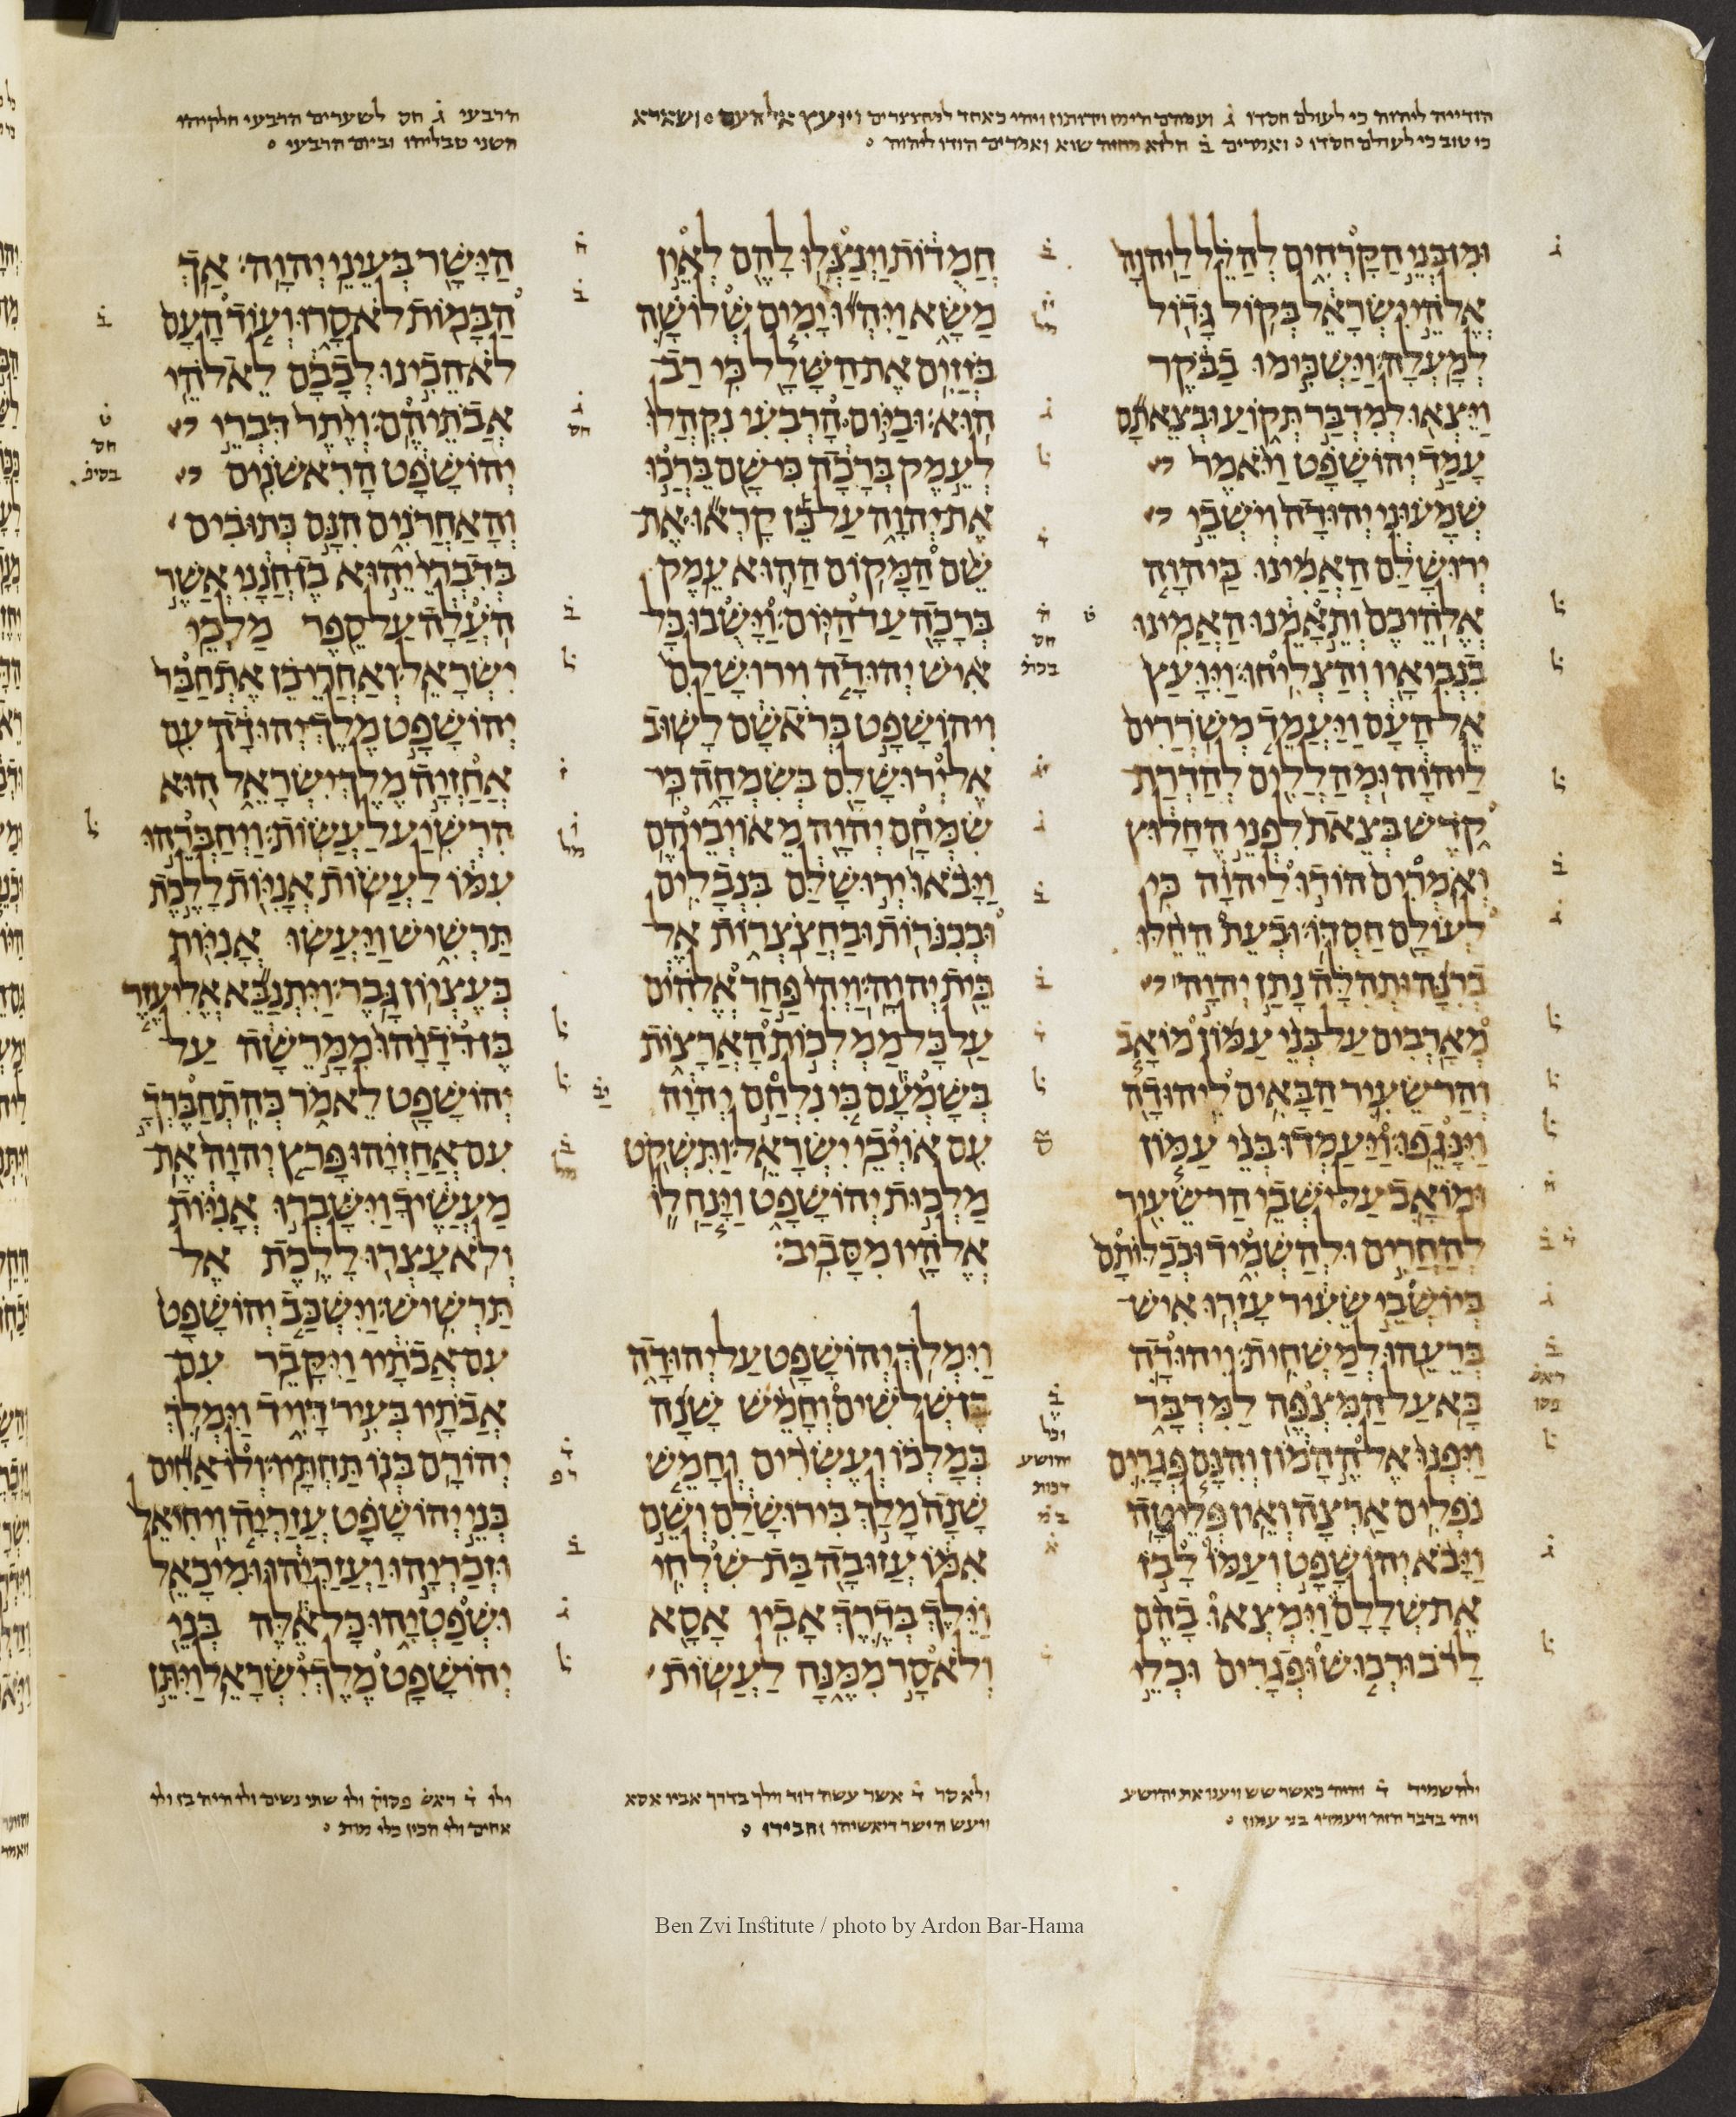 הודייה ליהוה כי לעולם חסדו ג ועמהם הימן וידותון ויהי כאחד למחצצרים ויועץ אל העם
כי טוב כי לעולם חסדו ואמרים ב הלוא מחזה שוא ואמרים הודו ליהוה
הרבעי ג חס לשערים הרבעי חלקיהו
השני טבליהו וביום הרבעי
ומן בני הקרחים להלל ליהוה
אלהי ישראל בקול גדול
למעלה׃ וישכימו בבקר
ויצאו למדבר תקוע ובצאתם
עמד יהושפט ויאמר
שמעוני יהודה וישבי
ירושלם האמינו ביהוה
אלהיכם ותאמנו האמינו
בנביאיו והצליחו׃ ויועץ
אל העם ויעמד משררים
ליהוה ומהללים להדרת
קדש בצאת לפני החלוץ
ואמרים הודו ליהוה כי
לעולם חסדו׃ ובעת החלו
ברנה ותהלה נתן יהוה׀
מארבים על בני עמון מואב
והר שעיר הבאים ליהודה
וינגפו׃ ויעמדו בני עמון
ומואב על ישבי הר שעיר
להחרים ולהשמיד וככלותם
ביושבי שעיר עזרו איש
ברעהו למשחית׃ ויהודה
בא על המצפה למדבר
ויפנו אל ההמון והנם פגרים
נפלים ארצה ואין פליטה׃
ויבא יהושפט ועמו לבז
את שללם וימצאו בהם
לרב ורכוש ופגרים וכלי
חמדות וינצלו להם לאין
משא ויהיו ימים שלושה
בזזים את השלל כי רב
הוא׃ וביום הרבעי נקהלו
לעמק ברכה כי שם ברכו
את יהוה על כן קראו את
שם המקום ההוא עמק
ברכה עד היום׃ וישבו כל
איש יהודה וירושלם
ויהושפט בראשם לשוב
אל ירושלם בשמחה כי
שמחם יהוה מאויביהם׃
ויבאו ירושלם בנבלים
ובכנרות ובחצצרות אל
בית יהוה׃ ויהי פחד אלהים
על כל ממלכות הארצות
בשמעם כי נלחם יהוה
עם אויבי ישראל׃ ותשקט
מלכות יהושפט וינח לו
אלהיו מסביב׃
וימלך יהושפט על יהודה
בן שלשים וחמש שנה
במלכו ועשרים וחמש
שנה מלך בירושלם ושם
אמו עזובה בת שלחי׃
וילך בדרך אביו אסא
ולא סר ממנה לעשות
הישר בעיני יהוה׃ אך
הבמות לא סרו ועוד העם
לא הכינו לבבם לאלהי
אבתיהם׃ ויתר דברי
יהושפט הראשנים
והאחרנים הנם כתובים
בדברי יהוא בן חנני אשר
העלה על ספר מלכי
ישראל׃ ואחרי כן אתחבר
יהושפט מלך יהודה עם
אחזיה מלך ישראל הוא
הרשיע לעשות׃ ויחברהו
עמו לעשות אניות ללכת
תרשיש ויעשו אניות
בעציון גבר׃ ויתנבא אליעזר
בן דדוהו ממרשה על
יהושפט לאמר כהתחברך
עם אחזיהו פרץ יהוה את
מעשיך וישברו אניות
ולא עצרו ללכת אל
תרשיש׃ וישכב יהושפט
עם אבתיו ויקבר עם
אבתיו בעיר דויד וימלך
יהורם בנו תחתיו׃ ולו אחים
בני יהושפט עזריה ויחיאל
וזכריהו ועזריהו ומיכאל
ושפטיהו כל אלה בני
יהושפט מלך ישראל׃ ויתן
ולהשמיד ד והיה כאשר שש ויענו את יהושע
ויהי בדבר הזה ויעמדו בני עמון
ולא סר ד אשר עשה דוד וילך בדרך אביו אסא
ויעש הישר דיאשיהו וחבירו
ולו ד ראש פסוק ולו שתי נשים ולו היה בן ולו
אחים ולו הכין כלי מות
Ben Zvi Institute / photo by Ardon Bar-Hama